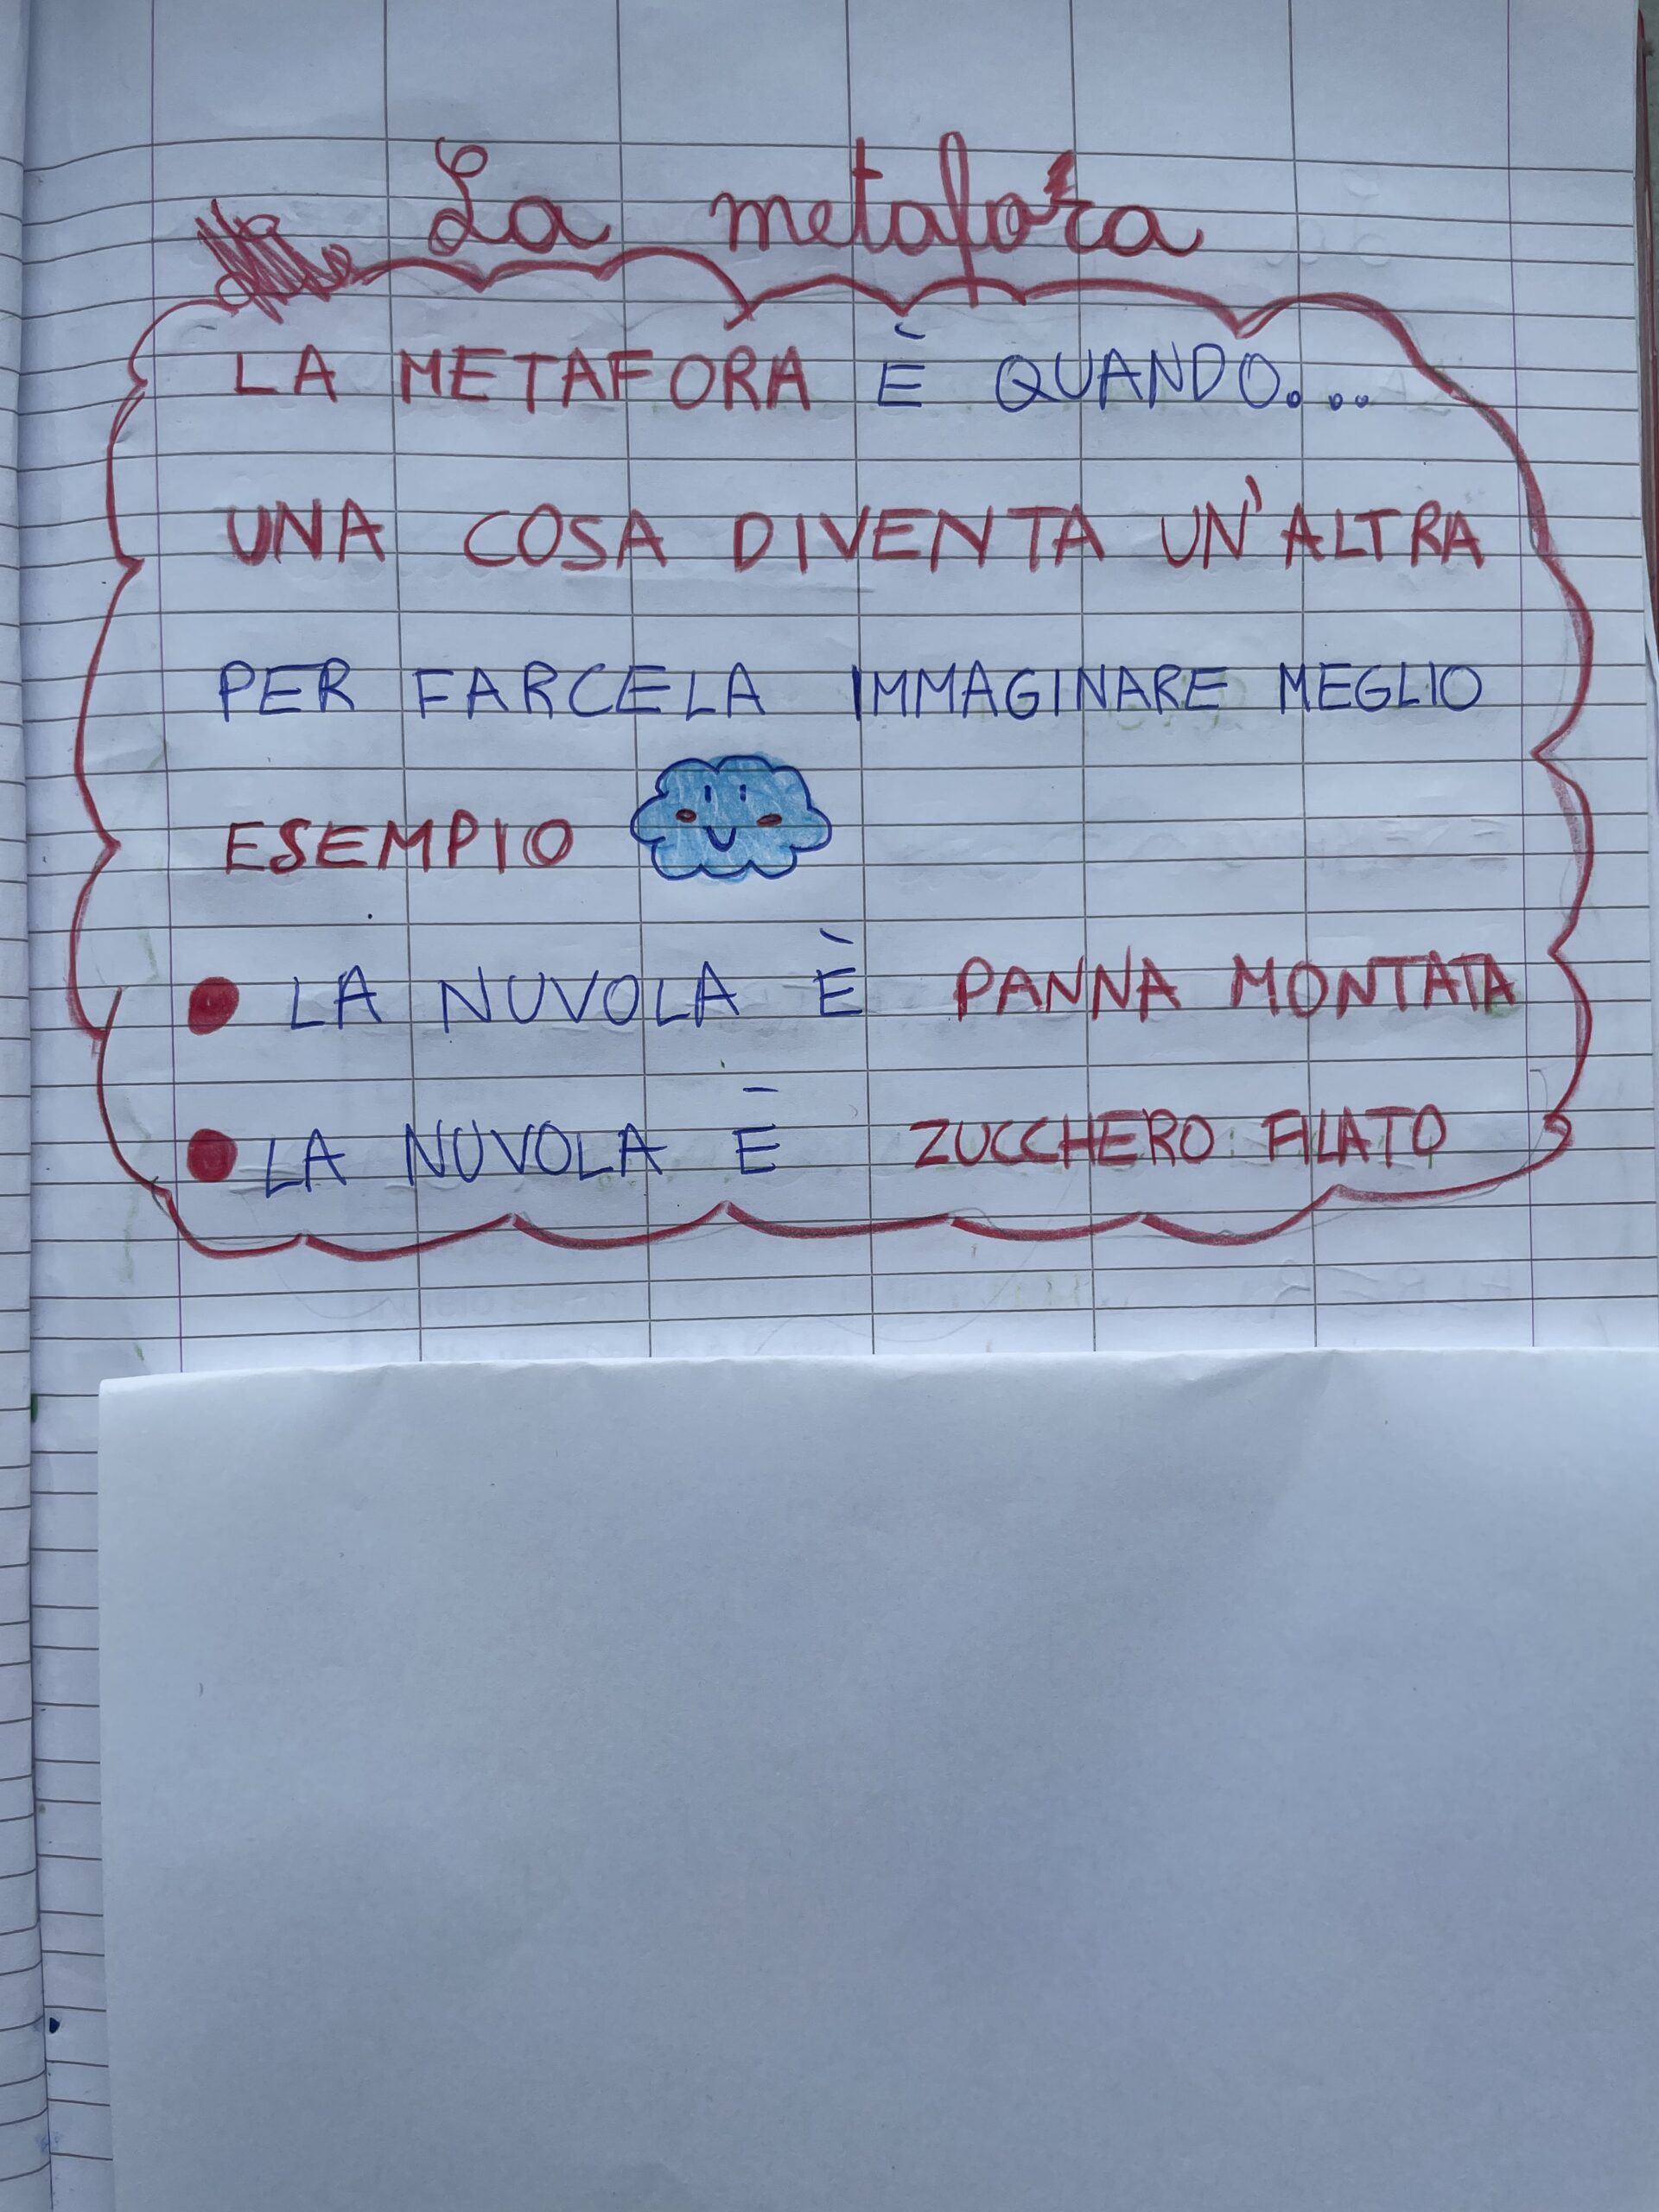 La metafora
LA METAFORA È QUANDO...
UNA COSA DIVENTA UN'ALTRA
PER FARCELA IMMAGINARE MEGLIO
ESEMPIO
● LA NUVOLA È PANNA MONTATA
● LA NUVOLA È ZUCCHERO FILATO